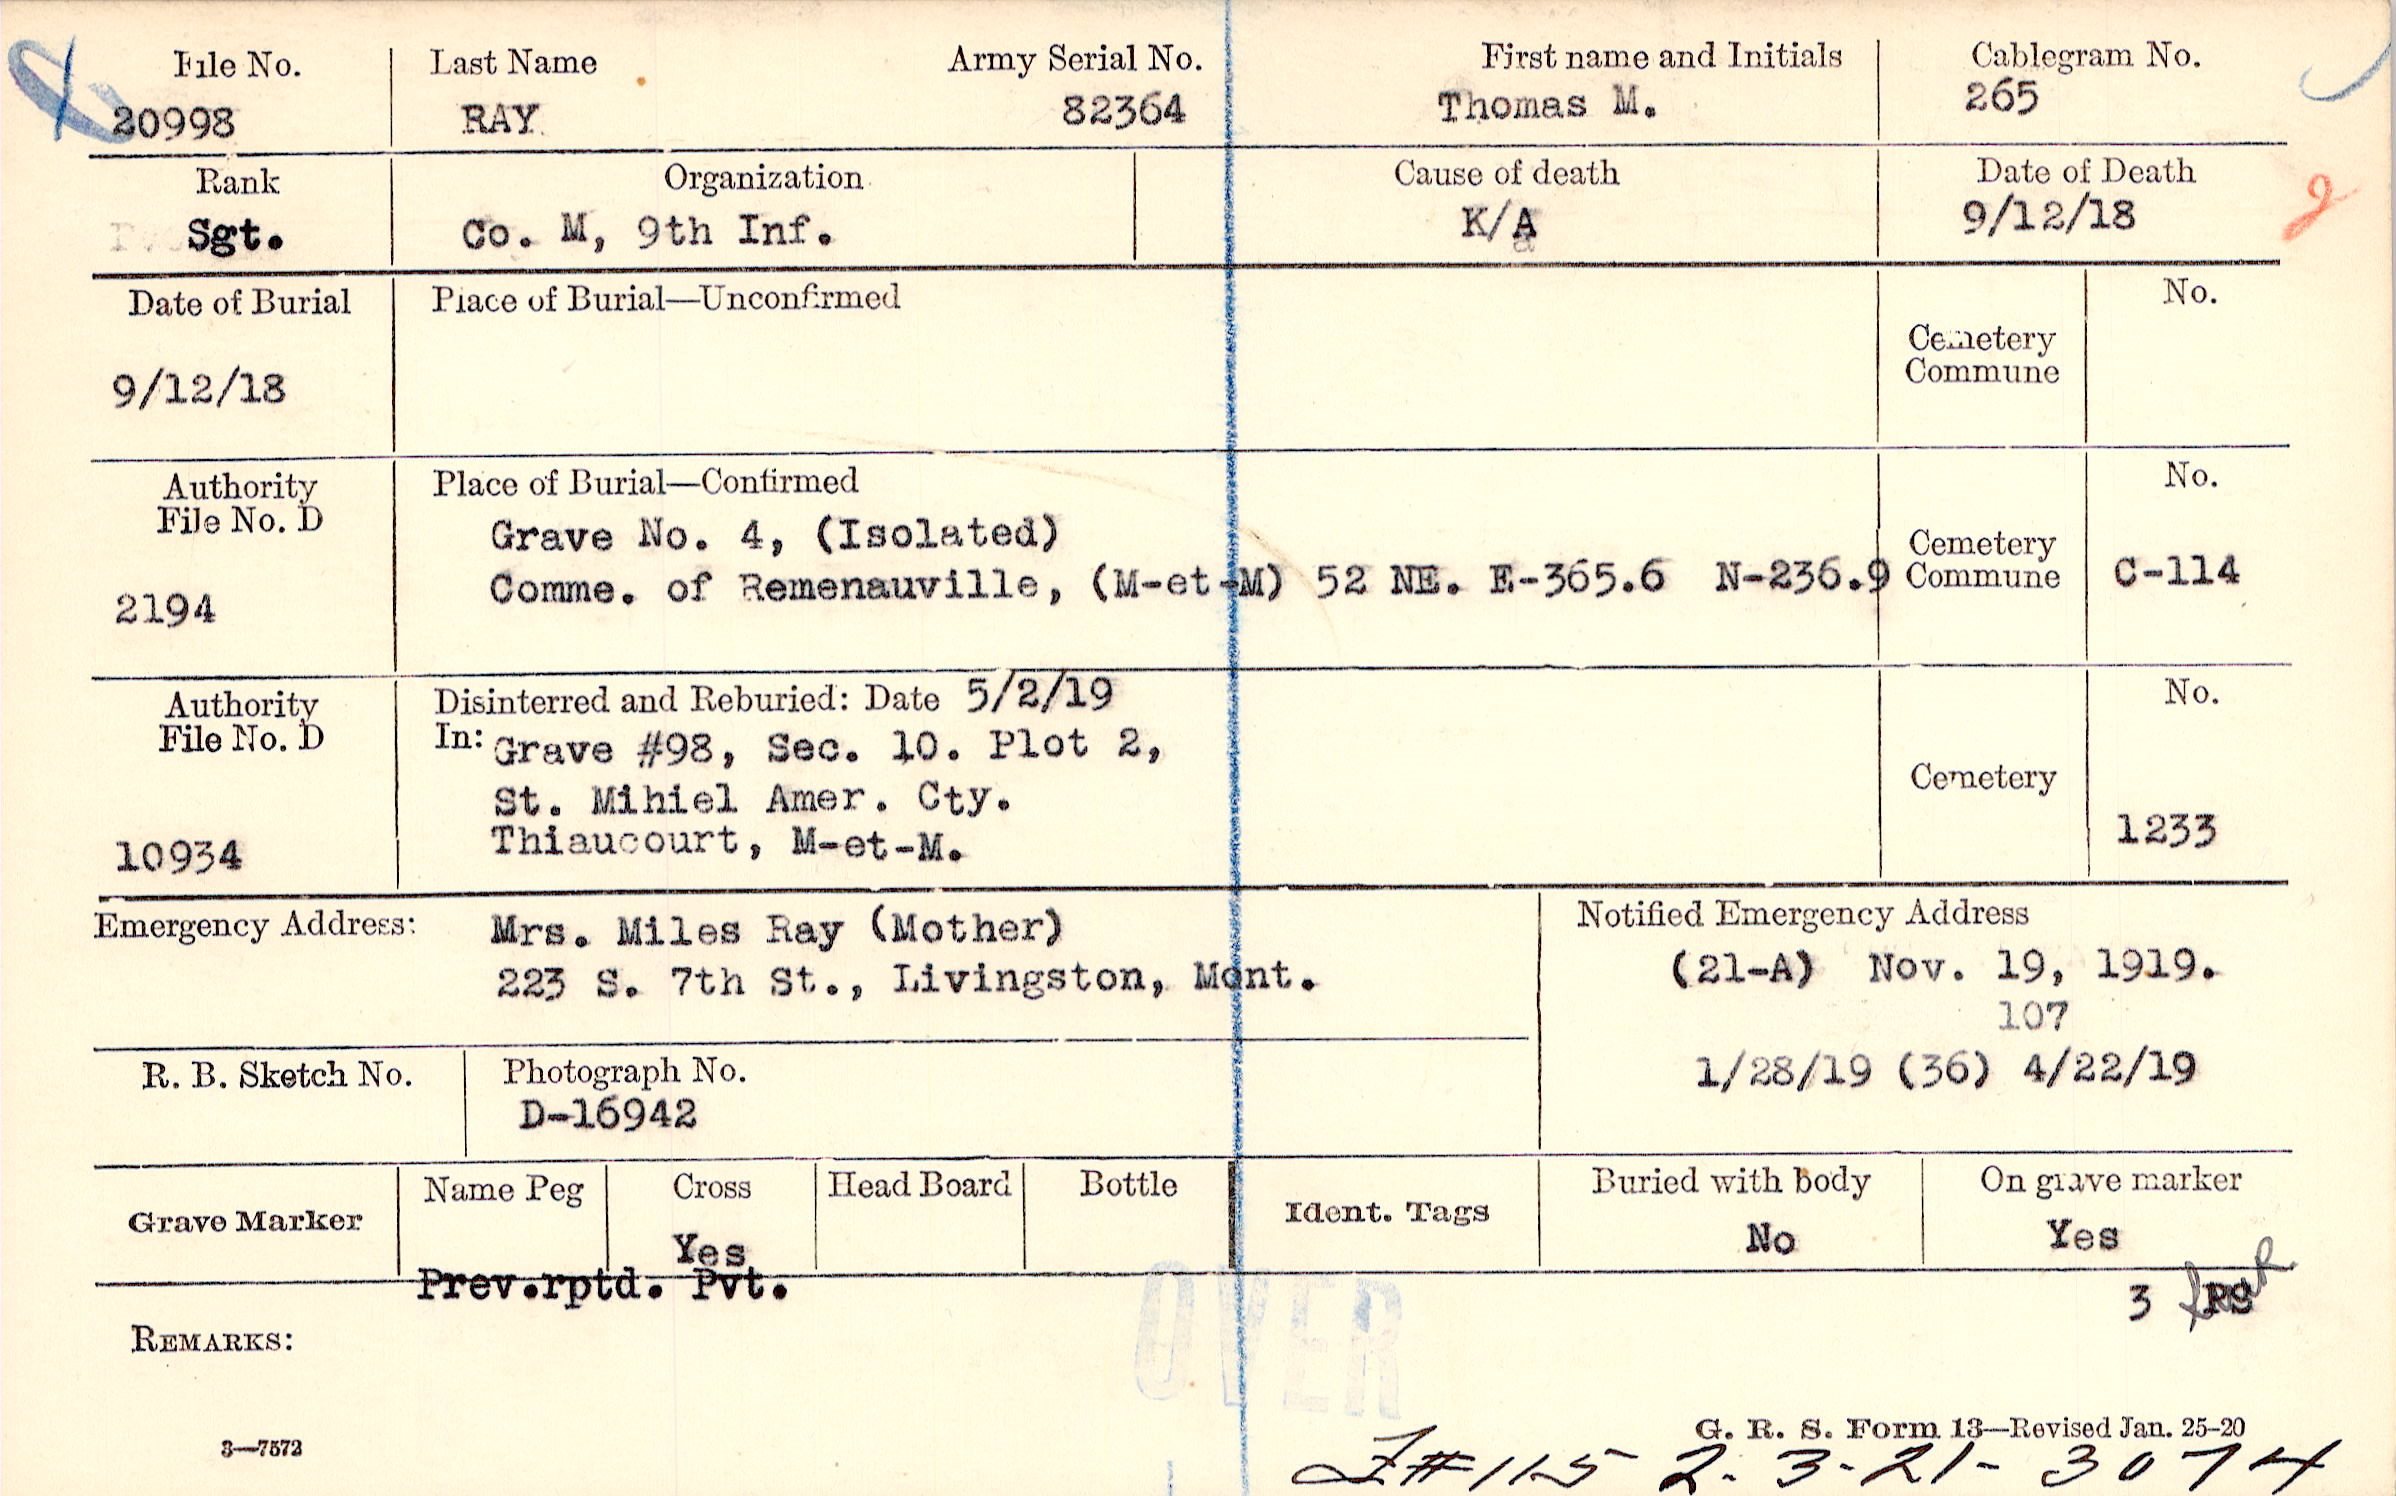 File No. Last Name Army Serial No. First name and Initials Cablegram No.
20998 RAY 82364 Thomas M. 265
Rank Organization Cause of death Date of Death
Sgt. Co. M, 9th Inf. K/A 9/12/18
Date of Burial Place of Burial—Unconfirmed No.
Cemetery
Commune
9/12/18
Authority Place of Burial—Confirmed No.
File No. D
Grave No. 4, (Isolated)
Cemetery
Comme. of Remenauville, (M-et-M) 52 NE. E-365.6 N-236.9 Commune C-114
2194
Authority Disinterred and Reburied: Date 5/2/19 No.
File No. D In: Grave #98, Sec. 10. Plot 2,
Cemetery
St. Mihiel Amer. Cty.
Thiaucourt, M-et-M. 1233
10934
Emergency Address: Mrs. Miles Ray (Mother) Notified Emergency Address
223 S. 7th St., Livingston, Mont. (21-A) Nov. 19, 1919.
107
R. B. Sketch No. Photograph No. 1/28/19 (36) 4/22/19
D-16942
Grave Marker Name Peg Cross Head Board Bottle Ident. Tags Buried with body On grave marker
Yes No Yes
Prev.rptd. Pvt. 3 PS
REMARKS:
OVER
3—7572 G. R. S. Form 13—Revised Jan. 25-20
#115 2-3-21- 3074